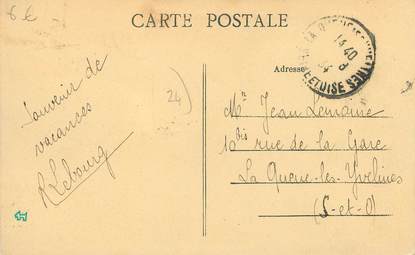 8€
CARTE POSTALE
Adresse
14 40
SEINE ET OISE
24
Souvenir de
vacances
R Lebourg
Mr Jean Lemoine
10bis rue de la Gare
La Queue-les-Yvelines
(S-et-O)